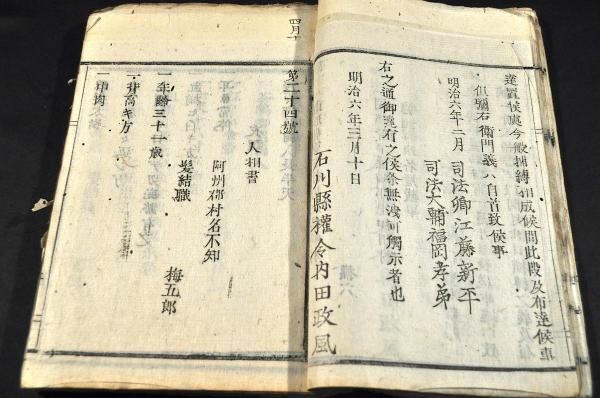 逹置候處今般捕縛相成候間此段及布逹候事
但彌右衛門義ハ自首致候事
明治六年二月 司法卿江藤新平
司法大輔福岡孝弟
右之通御達有之候条無洩可觸示者也
明治六年三月十日
石川縣權令内田政風
四月十
第二十四號
人相書
阿州郡村名不知
髪結職
梅五郎
一年齢三十一歳
一背高キ方